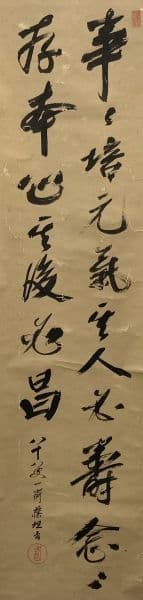 事〻培元氣其人必壽念〻
存本心其後必昌
八十叟一齋藤坦書